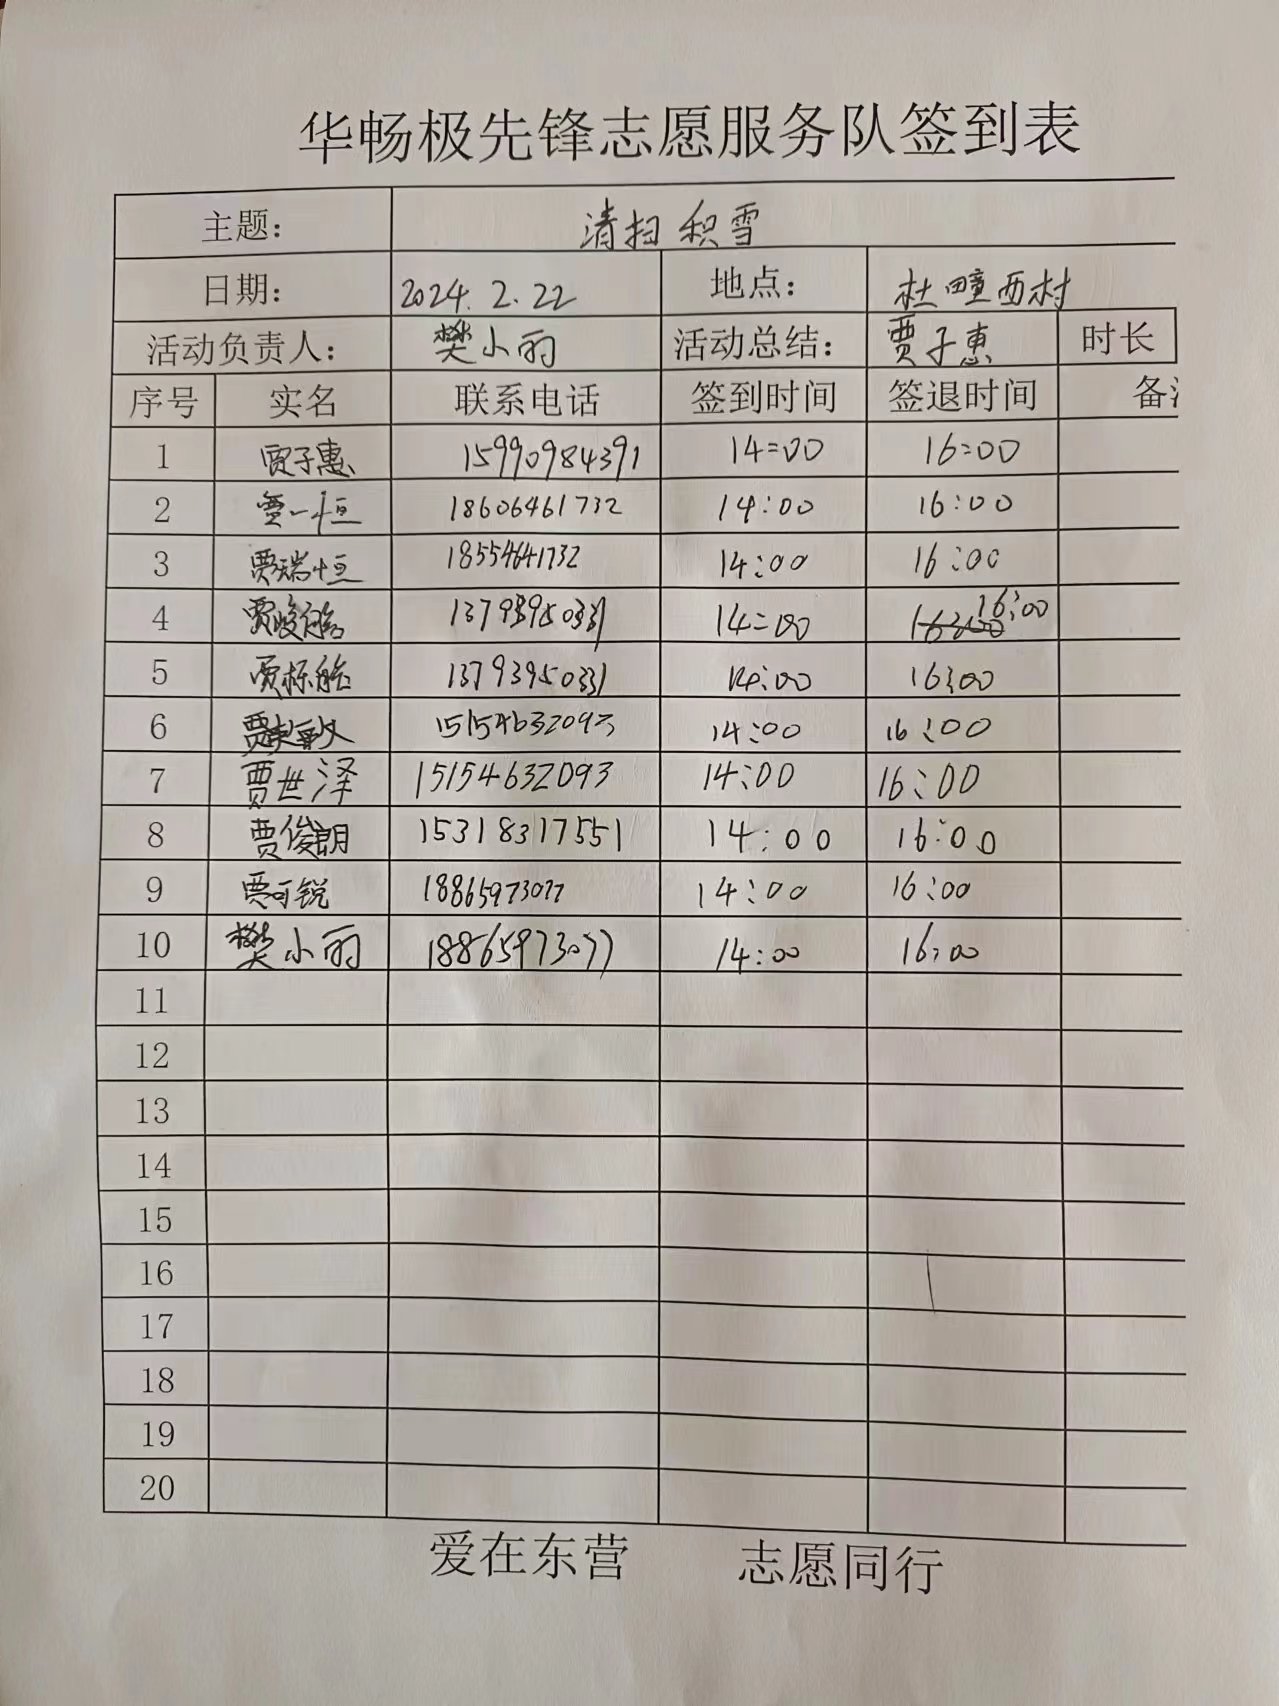 华畅极先锋志愿服务队签到表
主题： 清扫积雪
日期： 2024.2.22 地点： 杜疃西村
活动负责人： 樊小丽 活动总结： 贾子惠 时长
序号 实名 联系电话 签到时间 签退时间 备
1 贾子惠 15990984391 14:00 16:00
2 贾一恒 18606461732 14:00 16:00
3 贾瑞恒 18554641732 14:00 16:00
4 13793950331 14:00 16:00
5 13793950331 14:00 16:00
6 15154632093 14:00 16:00
7 贾世泽 15154632093 14:00 16:00
8 贾俊朗 15318317551 14:00 16:00
9 贾可锐 18865973077 14:00 16:00
10 樊小丽 18865973077 14:00 16:00
11
12
13
14
15
16
17
18
19
20
爱在东营 志愿同行